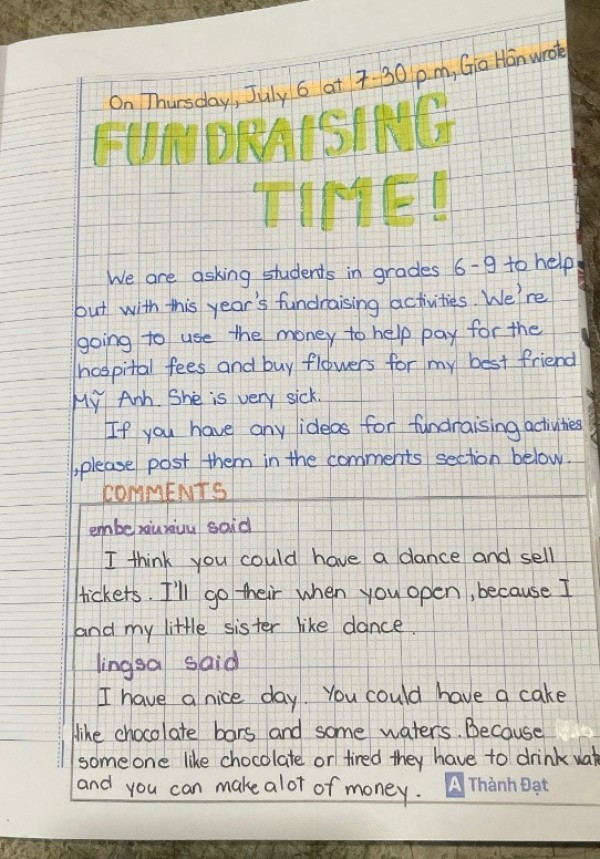 On Thursday, July 6 at 7-30 p.m, Gia Hân wrote
FUNDRAISING
TIME!
We are asking students in grades 6-9 to help
out with this year's fundraising activities. We're
going to use the money to help pay for the
hospital fees and buy flowers for my best friend
Mỹ Anh. She is very sick.
If you have any ideas for fundraising activities
,please post them in the comments section below.
COMMENTS
embexiuxiuu said
I think you could have a dance and sell
tickets. I'll go their when you open, because I
and my little sister like dance.
lingsa said
I have a nice day. You could have a cake
like chocolate bars and some waters. Because
someone like chocolate or tired they have to drink
and you can make alot of money.
A Thành Đạt